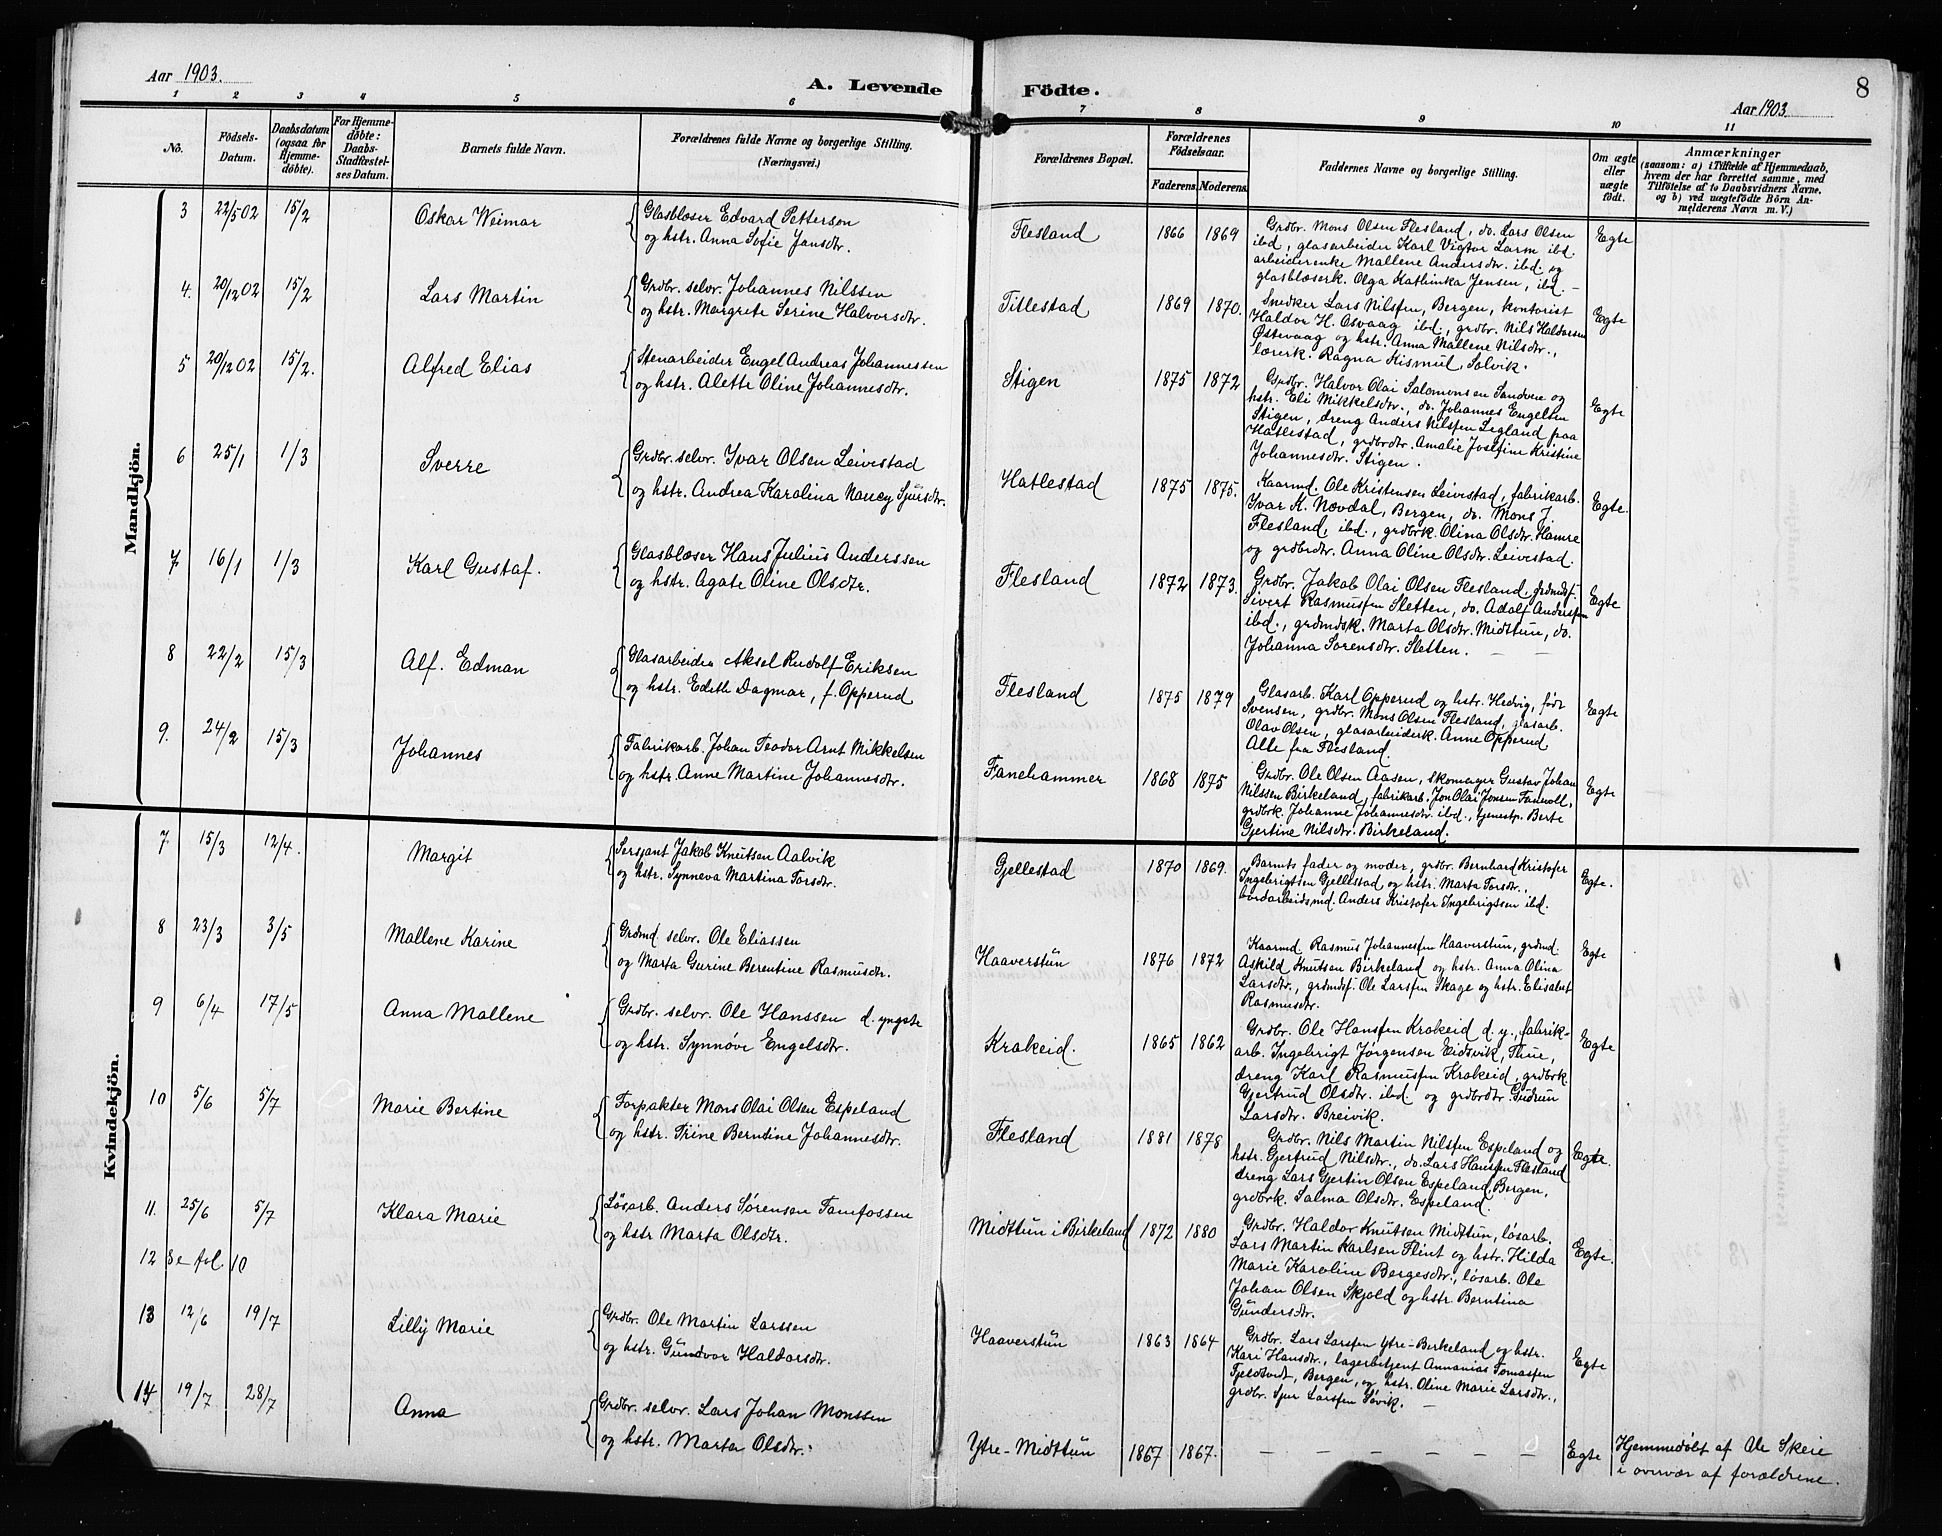 Aar 1903.
A. Levende
Födte.
8
Aar 1903
1 2 3 4 5 6 7 8 9 10 11
No.
Födsels-
Datum.
Daabsdatum
(ogsaa for
Hjemme-
döbte).
For Hjemme-
døbte:
Daabs-
Stadfæstel-
ses Datum.
Barnets fulde Navn.
Forældrenes fulde Navne og borgerlige Stilling.
(Næringsvei.)
Forældrenes Bopæl.
Forældrenes
Födselsaar.
Faderens.
Moderens.
Faddernes Navne og borgerlige Stilling.
Om ægte
eller
uægte
födt.
Anmærkninger
(saasom: a) i Tilfælde af Hjemmedaab,
hvem der har forrettet samme, med
Tilföielse af to Daabsvidners Navne,
og b) ved uægtefödte Börn An-
melderens Navn m. V.)
Mandkjön.
3 22/5 02 15/2 Oskar Weimar
Glasblæser Edvard Petterson
og hstr. Anna Sofie Jansdtr.
Flesland 1866 1869
Grdbr. Mons Olsen Flesland, do. Lars Olsen
ibd, glasarbeider Karl Vigtor Larm ibd.
arbeiderenke Mallene Andersdtr. ibd. og
glasblæserk. Olga Kathinka Jensen, ibd. –
Egte
4. 20/12 02 15/2 Lars Martin
Grdbr. selvr. Johannes Nilssen
og hstr. Margrete Serine Halvorsdtr.
Titlestad 1869 1870.
Snedker Lars Nilssen, Bergen, kontorist
Haldor H. Osvaag ibd, grdbr. Nils Haldorsen
Østervaag og hstr. Anna Mallene Nilsdtr.,
lærerk. Ragna Kismul, Solvik.
Egte
5 20/12 02 15/2. Alfred Elias
Stenarbeider Engel Andreas Johannessen
og hstr. Alette Oline Johannesdtr.
Stigen 1875 1872
Grdbr. Halvor Olai Salomonsen Sandven og
hstr. Eli Mikkelsdtr., do. Johannes Engelsen
Stigen, dreng Anders Nilssen Legland paa
Hatlestad, grdbrdtr. Amalie Josefine Kristine
Johannesdtr. Stigen.
Egte
6 25/1 1/3 Sverre
Grdbr. selvr. Ivar Olsen Leivestad
og hstr. Andrea Karolina Nancy Sjursdtr.
Hatlestad 1875 1875.
Kaarmd. Ole Kristensen Leivestad, fabrikarb.
Ivar K. Nævdal, Bergen, do. Mons J.
Flesland, ibd., grdbrk. Olina Olsdtr. Hamre
og grdbrdtr. Anna Oline Olsdtr. Leivestad.
Egte.
7 16/1 1/3 Karl Gustaf.
Glasblæser Hans Julius Anderssen
og hstr. Agate Oline Olsdtr.
Flesland 1872 1873.
Grdbr. Jakob Olai Olsen Flesland, grdmdsf.
Sivert Rasmussen Sletten, do. Adolf Anderssen
ibd., grdmdsk. Marta Olsdtr. Midttun, do.
Johanna Sørensdtr. Sletten. – –
Egte
8 22/2 15/3 Alf. Edman
Glasarbeider Aksel Rudolf Eriksen
og hstr. Edith Dagmar, f. Opperud
Flesland 1875 1879
Glasarb. Karl Opperud og hstr. Hedvig, født
Svensen, grdbr. Mons Olsen Flesland, glasarb.
Olav Olsen, glasarbeiderk. Anne Opperud
Alle fra Flesland.
Egte
9. 24/2 15/3 Johannes
Fabrikarb. Johan Teodor Arnt Mikkelsen
og hstr. Anne Martine Johannesdtr.
Fanehammer 1868 1875
Grdbr. Ole Olsen Aasen, skomager Gustav Johan
Nilssen Birkeland, fabrikarb. Jon Olai Jonsen Fannoll,
grdbrk. Johanne Johannesdtr. ibd., tjenestp. Berte
Gjertine Nilsdtr. Birkeland.
Egte
Kvindekjön.
7 15/3 12/4. Margit
Sersjant Jakob Knutsen Aalvik
og hstr. Synneva Martina Torsdtr.
Gjellestad 1870 1869.
Barnets fader og moder, grdbr. Bernhard Kristofer
Ingebrigtsen Gjellestad og hstr. Marta Torsdtr.,
jordarbeidsmd. Anders Kristofer Ingebrigtssen ibd.
Egte.
8 23/3 3/5 Mallene Karine
Grdmd selvr. Ole Eliassen
og Marta Gurine Berentine Rasmusdtr.
Haaverstün 1876 1872
Kaarmd. Rasmus Johannessen Haaverstun, grdmd.
Askild Knutsen Birkeland og hstr. Anna Olina
Larsdtr., grdmdsf. Ole Larssen Skage og hstr. Elisabet
Rasmusdtr.
Egte
9 6/4 17/5 Anna Mallene
Grdbr. selvr. Ole Hanssen d. yngste
og hstr. Synnøve Engelsdtr.
Krokeid. 1865 1862
Grdbr. Ole Hanssen Krokeid d. y., fabrik-
arb. Ingebrigt Jørgensen Eidsvik, Flue,
dreng Karl Rasmussen Krokeid, grdbrk.
Gjertrud Olsdtr. ibd. og grdbrdtr. Gudrun
Larsdtr. Breivik.
Egte
10 5/6 5/7 Marie Bertine
Forpakter Mons Olai Olsen Espeland
og hstr. Trine Berntine Johannesdtr.
Flesland 1881 1878
Grdbr. Nils Martin Nilssen Espeland og
hstr. Gjertrud Nilsdtr., do. Lars Hanssen Flesland
dreng Lars Gjertin Olsen Espeland, Bergen,
grdbrk. Salma Olsdtr. Espeland.
Egte.
11. 25/6 5/7 Klara Marie
Løsarb. Anders Sörensen Tamfossen
og hstr Marta Olsdtr.
Midttun i Birkeland 1872 1880
Grdbr. Haldor Knutsen Midttun, løsarb.
Lars Martin Karlsen Flint og hstr. Hilda
Marie Karoline Bergesdtr., løsarb. Ole
Johan Olsen Skjold og hstr. Berntina
Gundersdtr.
Egte.
12 Se fol. 10
13 12/6 19/7 Lilly Marie
Grdbr. Ole Martin Larssen
og hstr. Gundvor Haldorsdtr.
Haaverstün 1863 1864
Grdbr. Lars Larssen Ytre-Birkeland og hstr.
Kari Hansdtr., lagerbetjent Annanias Tomassen
Fjeldtvedt, Bergen, og hstr. Oline Marie Larsdtr.,
grdbr. Sjur Larssen Søvik. –
Egte
14 19/7 28/7 Anna
Grdbr. selvr. Lars Johan Monssen
og hstr. Marta Olsdtr.
Ytre-Midttün 1867 1867.
– – – – – –
Egte
Hjemmedøbt af Ole Skeie
i overvær af forældrene.